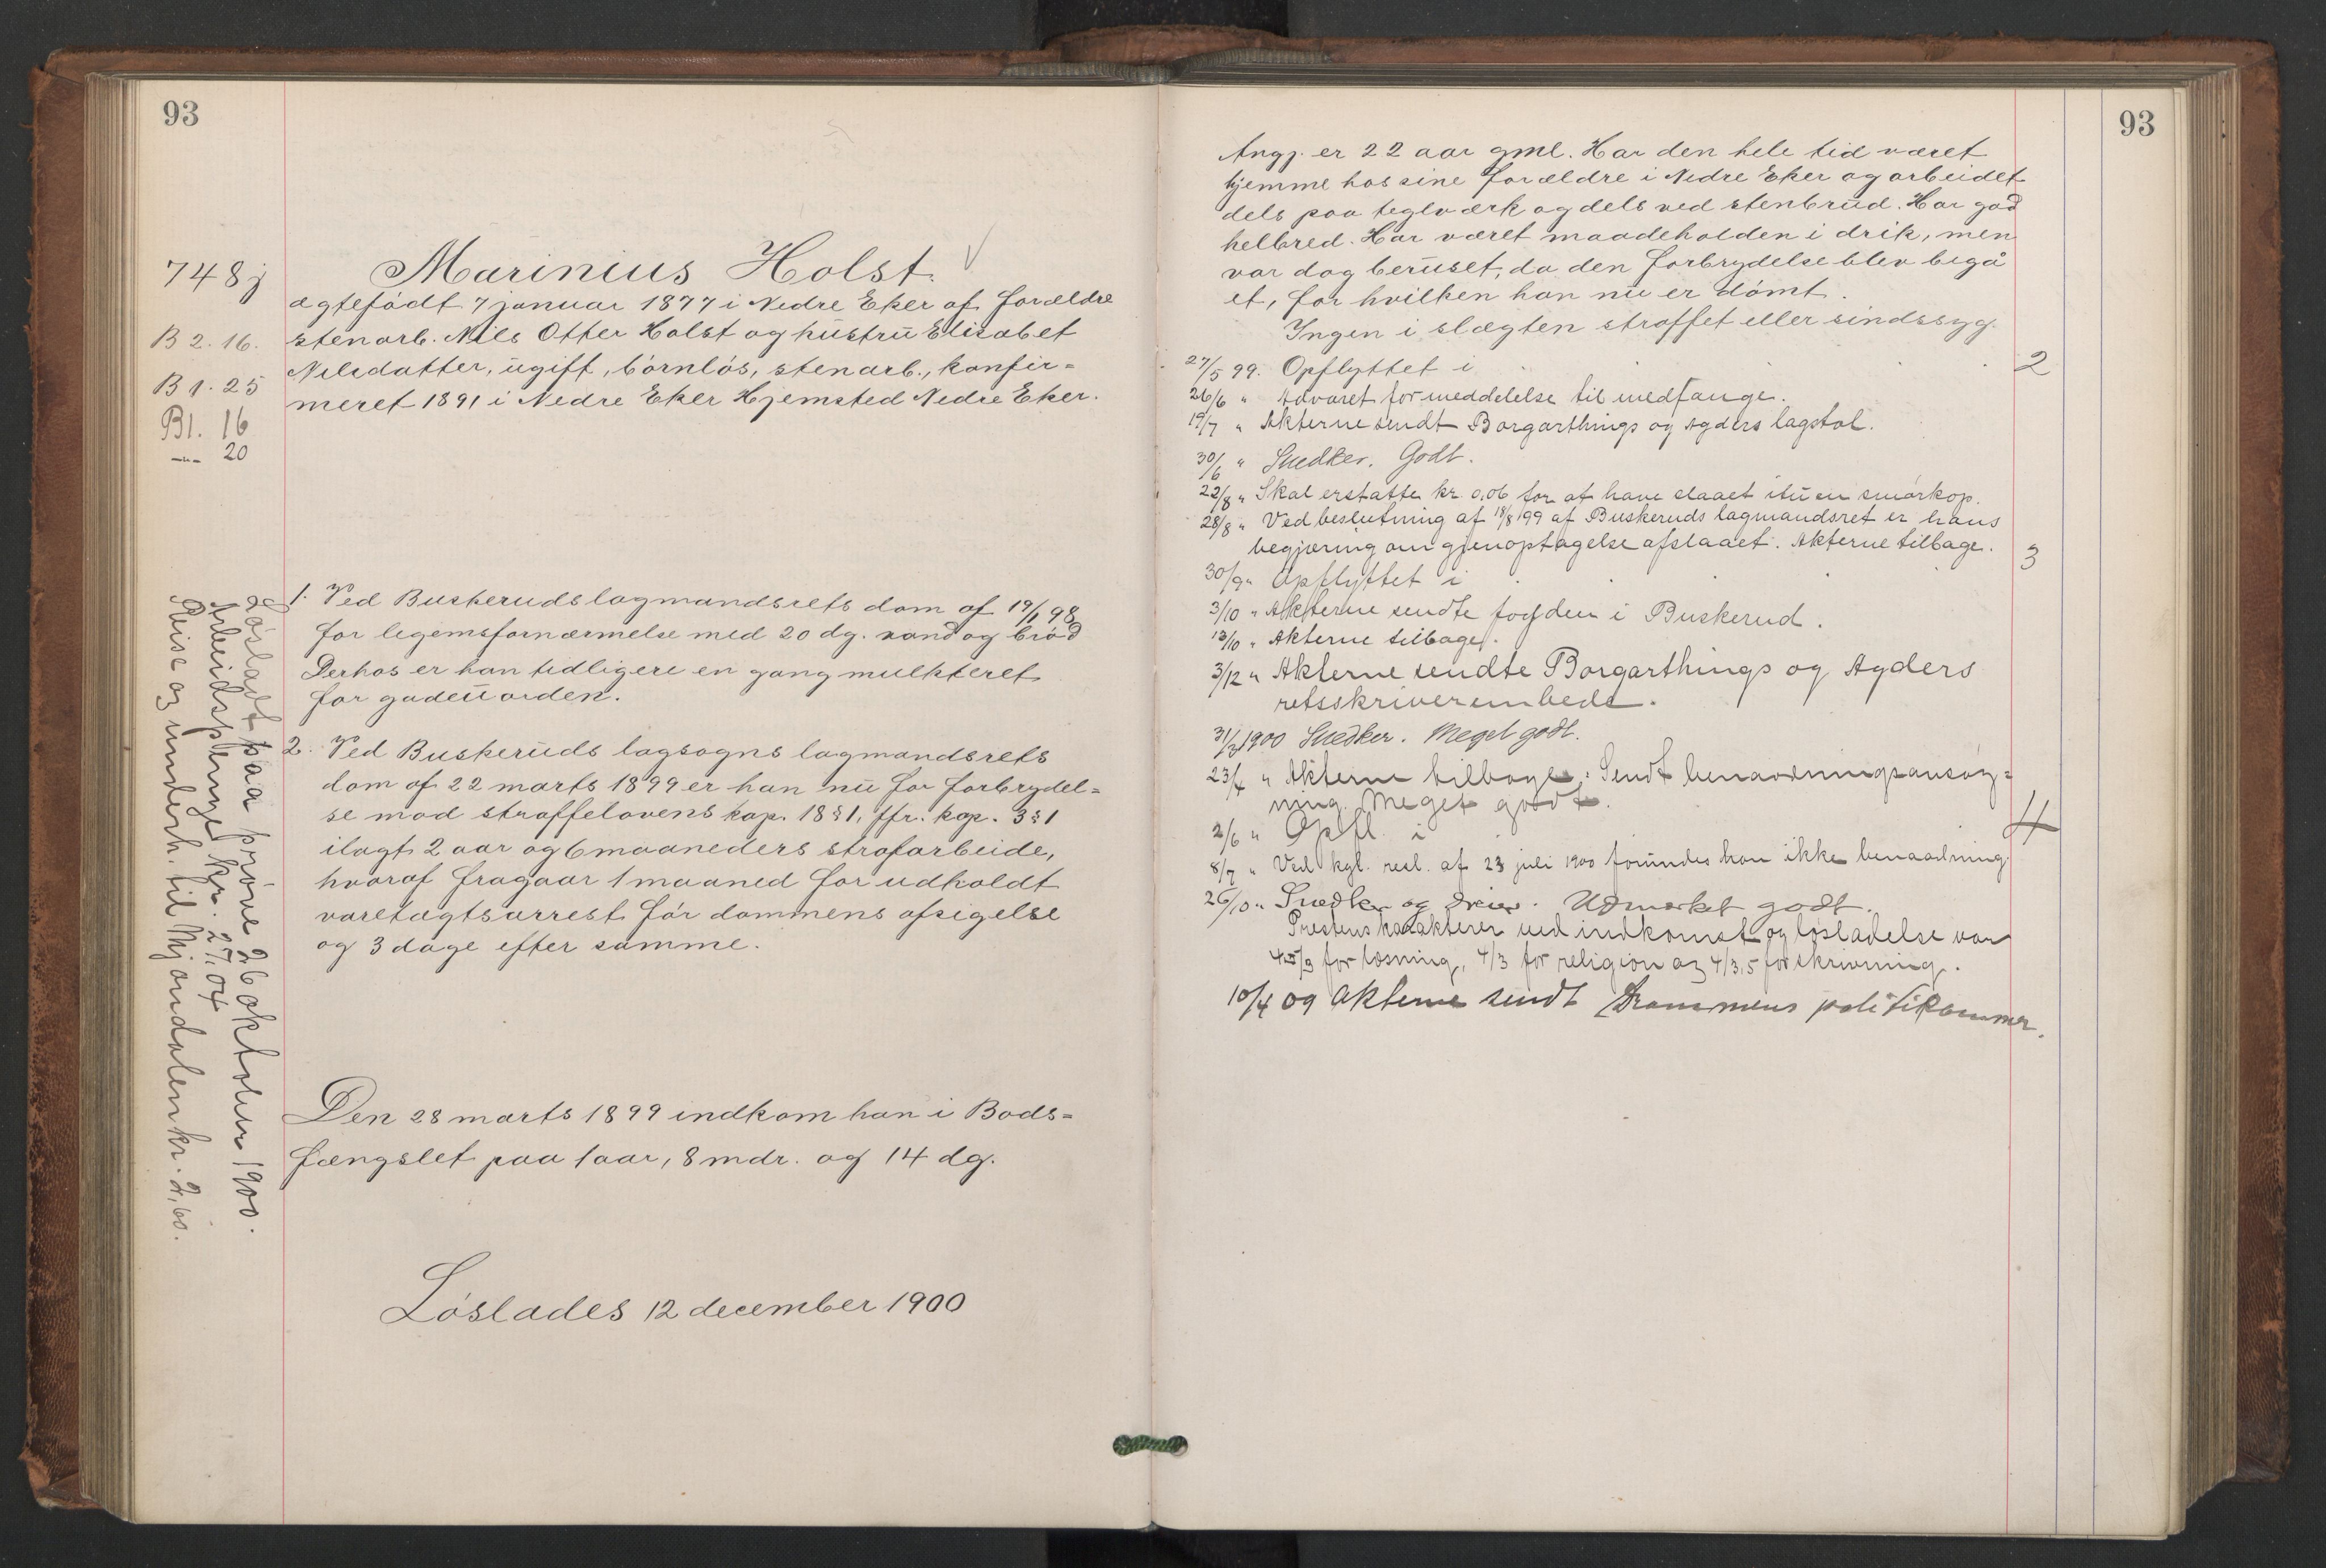 93
748j
Marinius Holst.
ægtefödt 7 januar 1877 i Nedre Eker af forældre
B 2. 16.
stenarb. Nils Otter Holst og hustru Elisabet
Nilsdatter, ugift, börnlös, stenarb., konfir=
B 1. 25
meret 1891 i Nedre Eker Hjemsted Nedre Eker.
Bl. 16
—"— 20
1. Ved Buskeruds lagmandsrets dom af 19/1 98
for legemsfornærmelse med 20 dg. vand og bröd
Derhos er han tidligere en gang mulkteret
for gadeuorden.
2. Ved Buskeruds lagsogns lagmandsrets
dom af 22 marts 1899 er han nu for forbrydel=
se mod straffelovens kap. 18 § 1, jfr. kap. 3 § 1
ilagt 2 aar og 6 maaneders strafarbeide,
hvoraf fragaar 1 maaned for udholdt
varetægtsarrest för dommens afsigelse
og 3 dage efter samme.
Den 28 marts 1899 indkom han i Bods=
fængslet paa 1 aar, 8 mdr. og 14 dg.
Löslades 12 december 1900
Lösladt paa pröve 26 oktober 1900.
Arbeidspenge kr. 27,04
Reise og underh. til Mjöndalen kr. 2,60.
93
Angj. er 22 aar gml. Har den hele tid været
hjemme hos sine forældre i Nedre Eker og arbeidet
dels paa teglværk og dels ved stenbrud. Har god
helbred. Har været maadeholden i drik, men
var dog beruset, da den forbrydelse blev begå
et, for hvilken han nu er dömt.
Ingen i slægten straffet eller sindssyg.
27/5 99. Opflyttet i 2
26/6 " Advaret for meddelelse til medfange.
19/7 " Akterne sendt Borgarthings og Agders lagstol.
30/6 " Snedker. Godt.
22/8 " Skal erstatte kr. 0,06 for at have slaaet itu en smörkop.
28/8 " Ved beslutning af 18/8 99 af Buskeruds lagmandsret er hans
begjæring om gjenoptagelse afslaaet. Akterne tilbage.
30/9 " Opflyttet i 3
3/10 " Akterne sendte fogden i Buskerud.
13/10 " Akterne tilbage.
3/12 " Akterne sendte Borgarthings og Agders
retsskriverembede.
31/3 1900 Snedker. Meget godt.
23/4 " Akterne tilbage. Sendt benaadningsansög=
ning. Meget godt.
2/6 " Opfl. i 4
8/7 " Ved kgl. resl. af 23 juli 1900 forundes han ikke benaadning.
26/10 " Snedker og dreier. Udmærket godt.
Prestens karakterer ved indkomst og lösladelse var
4,5/3 for læsning, 4/3 for religion og 4/3,5 for skrivning.
10/4 09 Akterne sendt Drammens politikammer.